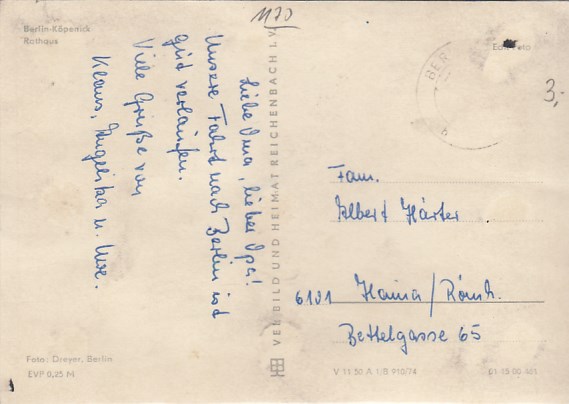 Berlin-Köpenick
Rathaus
1170
Liebe Oma, lieber Opa!
Unsere Fahrt nach Berlin ist
gut verlaufen.
Viele Grüße von
Klaus, Angelika u. Uwe.
VEB BILD UND HEIMAT REICHENBACH I.V.
BER
Echt Foto
3,-
Fam.
Albert Härter
6101 Haina/Römh.
Bettelgasse 65
Foto: Dreyer, Berlin
EVP 0,25 M
V 11 50 A 1/B 910/74
01 15 00 461